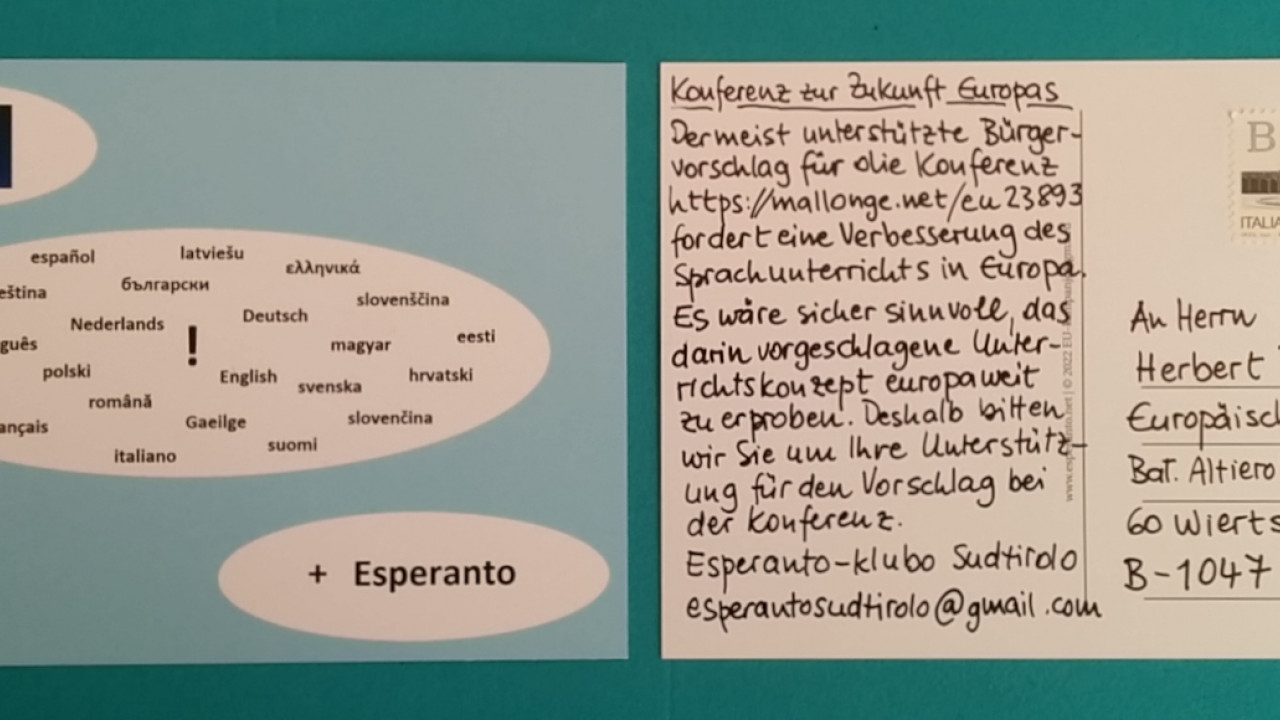 español
latviešu
ελληνικά
eština
български
slovenščina
Nederlands
!
Deutsch
eesti
guês
magyar
polski
English
svenska
hrvatski
română
ançais
Gaeilge
slovenčina
italiano
suomi
+ Esperanto
Konferenz zur Zukunft Europas
Der meist unterstützte Bürger-
vorschlag für die Konferenz
https://mallonge.net/eu23893
fordert eine Verbesserung des
Sprachunterrichts in Europa.
Es wäre sicher sinnvoll, das
darin vorgeschlagene Unter-
richtskonzept europaweit
zu erproben. Deshalb bitten
wir Sie um Ihre Unterstütz-
ung für den Vorschlag bei
der Konferenz.
Esperanto-klubo Sudtirolo
esperantosudtirolo@gmail.com
B
ITALIA
An Herrn
Herbert
Europäisc
Bat. Altiero
60 Wierts
B-1047